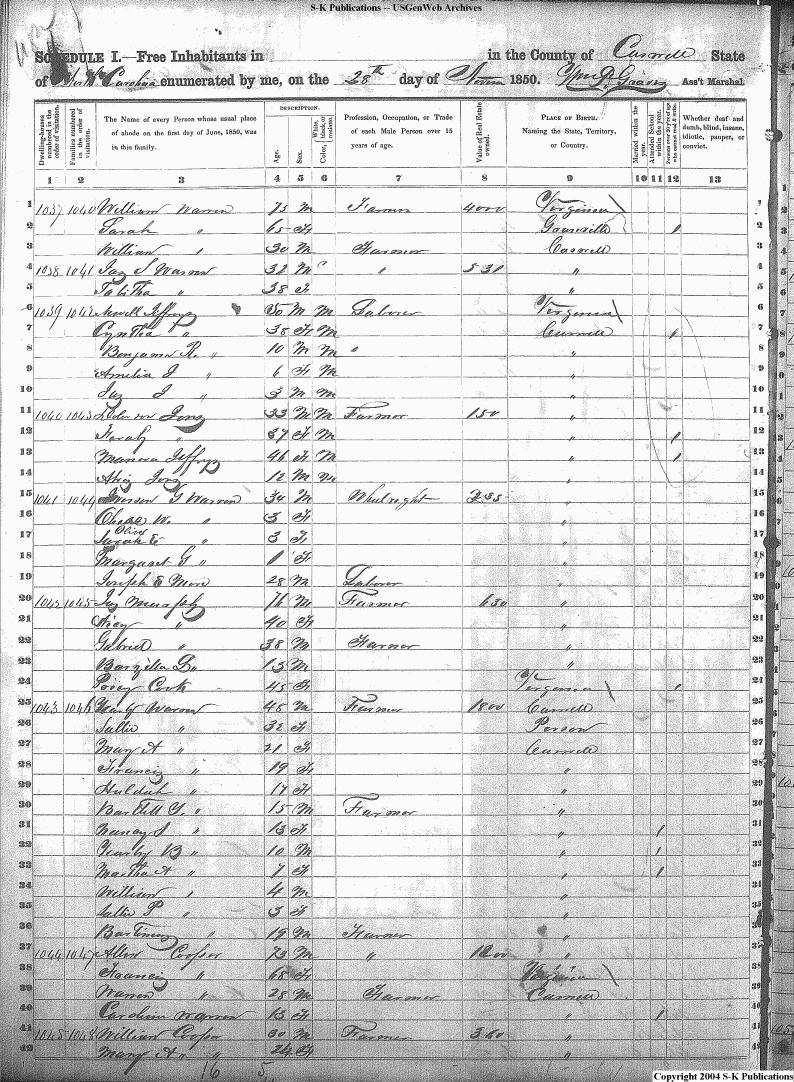 S-K Publications -- USGenWeb Archives
SCHEDULE I.—Free Inhabitants in in the County of Caswell State
of North Carolina enumerated by me, on the 28th day of 1850. Ass't Marshal.
Dwelling-houses numbered in the order of visitation. Families numbered in the order of visitation. The Name of every Person whose usual place of abode on the first day of June, 1850, was in this family. DESCRIPTION. Age. Sex. Color, White, black, or mulatto. Profession, Occupation, or Trade of each Male Person over 15 years of age. Value of Real Estate owned. PLACE OF BIRTH. Naming the State, Territory, or Country. Married within the year. Attended School within the year. Persons over 20 y'rs of age who cannot read & write. Whether deaf and dumb, blind, insane, idiotic, pauper, or convict.
1 2 3 4 5 6 7 8 9 10 11 12 13
1 1037 1040 William Warren 75 M Farmer 4000 Virginia 1
2 Sarah " 65 F Granville 1 2
3 William " 30 M Farmer Caswell 3
4 1038 1041 Jas S Warren 32 M " 530 " 4
5 Tabitha " 38 F " 5
6 1039 1042 Jeffreys 50 M M Laborer Virginia 6
7 Cyntha " 38 F M Caswell 1 7
8 Benjamin R. " 10 M M " " 8
9 Amelia J " 6 F M " 9
10 Jas J " 3 M M " 10
11 1040 1043 Jones 33 M M Farmer 150 " 11
12 " 37 F M " 1 12
13 Jeffreys 46 F M " 1 13
14 Jones 12 M M " 14
15 1041 1044 Iverson G Warren 34 M Wheelright " 15
16 W. " 3 F " 16
17 Olive
Sarah E " 3 F " 17
18 Margaret G " 1 F " 18
19 Joseph E More 28 M Laborer " 19
20 1042 1045 Jas Murphy 76 M Farmer 630 " 20
21 " 40 F " 21
22 Gabriel " 38 M Farmer " 22
23 Barzilla L " 13 M " 23
24 Cook 45 F Virginia 1 24
25 1043 1046 Warren 48 M Farmer 1800 Caswell 25
26 Sallie " 32 F Person 26
27 Mary A " 21 F Caswell 27
28 Francis " 19 F " 28
29 Huldah " 17 F " 29
30 Bartlett Y. " 15 M Farmer " 30
31 Nancy S " 13 F " 1 31
32 Yearby B " 10 M " 1 32
33 Martha A " 7 F " 1 33
34 William " 4 M " 34
35 Sallie P " 3 F " 35
36 " 19 M Farmer " 36
37 1044 1047 Allen Cooper 73 M " 1200 " 37
38 Francis " 68 F Virginia 38
39 Warren " 28 M Farmer Caswell 39
40 Caroline Warren 13 F " 1 40
41 1045 1048 William Cooper 30 M Farmer 360 " 41
42 Mary A " " 24 F " 42
16 5
Copyright 2004 S-K Publications